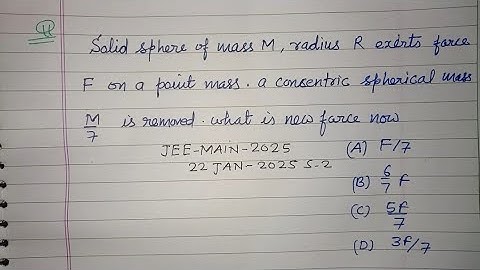 Q
Solid sphere of mass M, radius R exerts force
F on a point mass. a consentric spherical mass
M/7 is removed. what is new force now
JEE-MAIN-2025
22 JAN-2025 S-2
(A) F/7
(B) 6/7 F
(C) 5f/7
(D) 3f/7